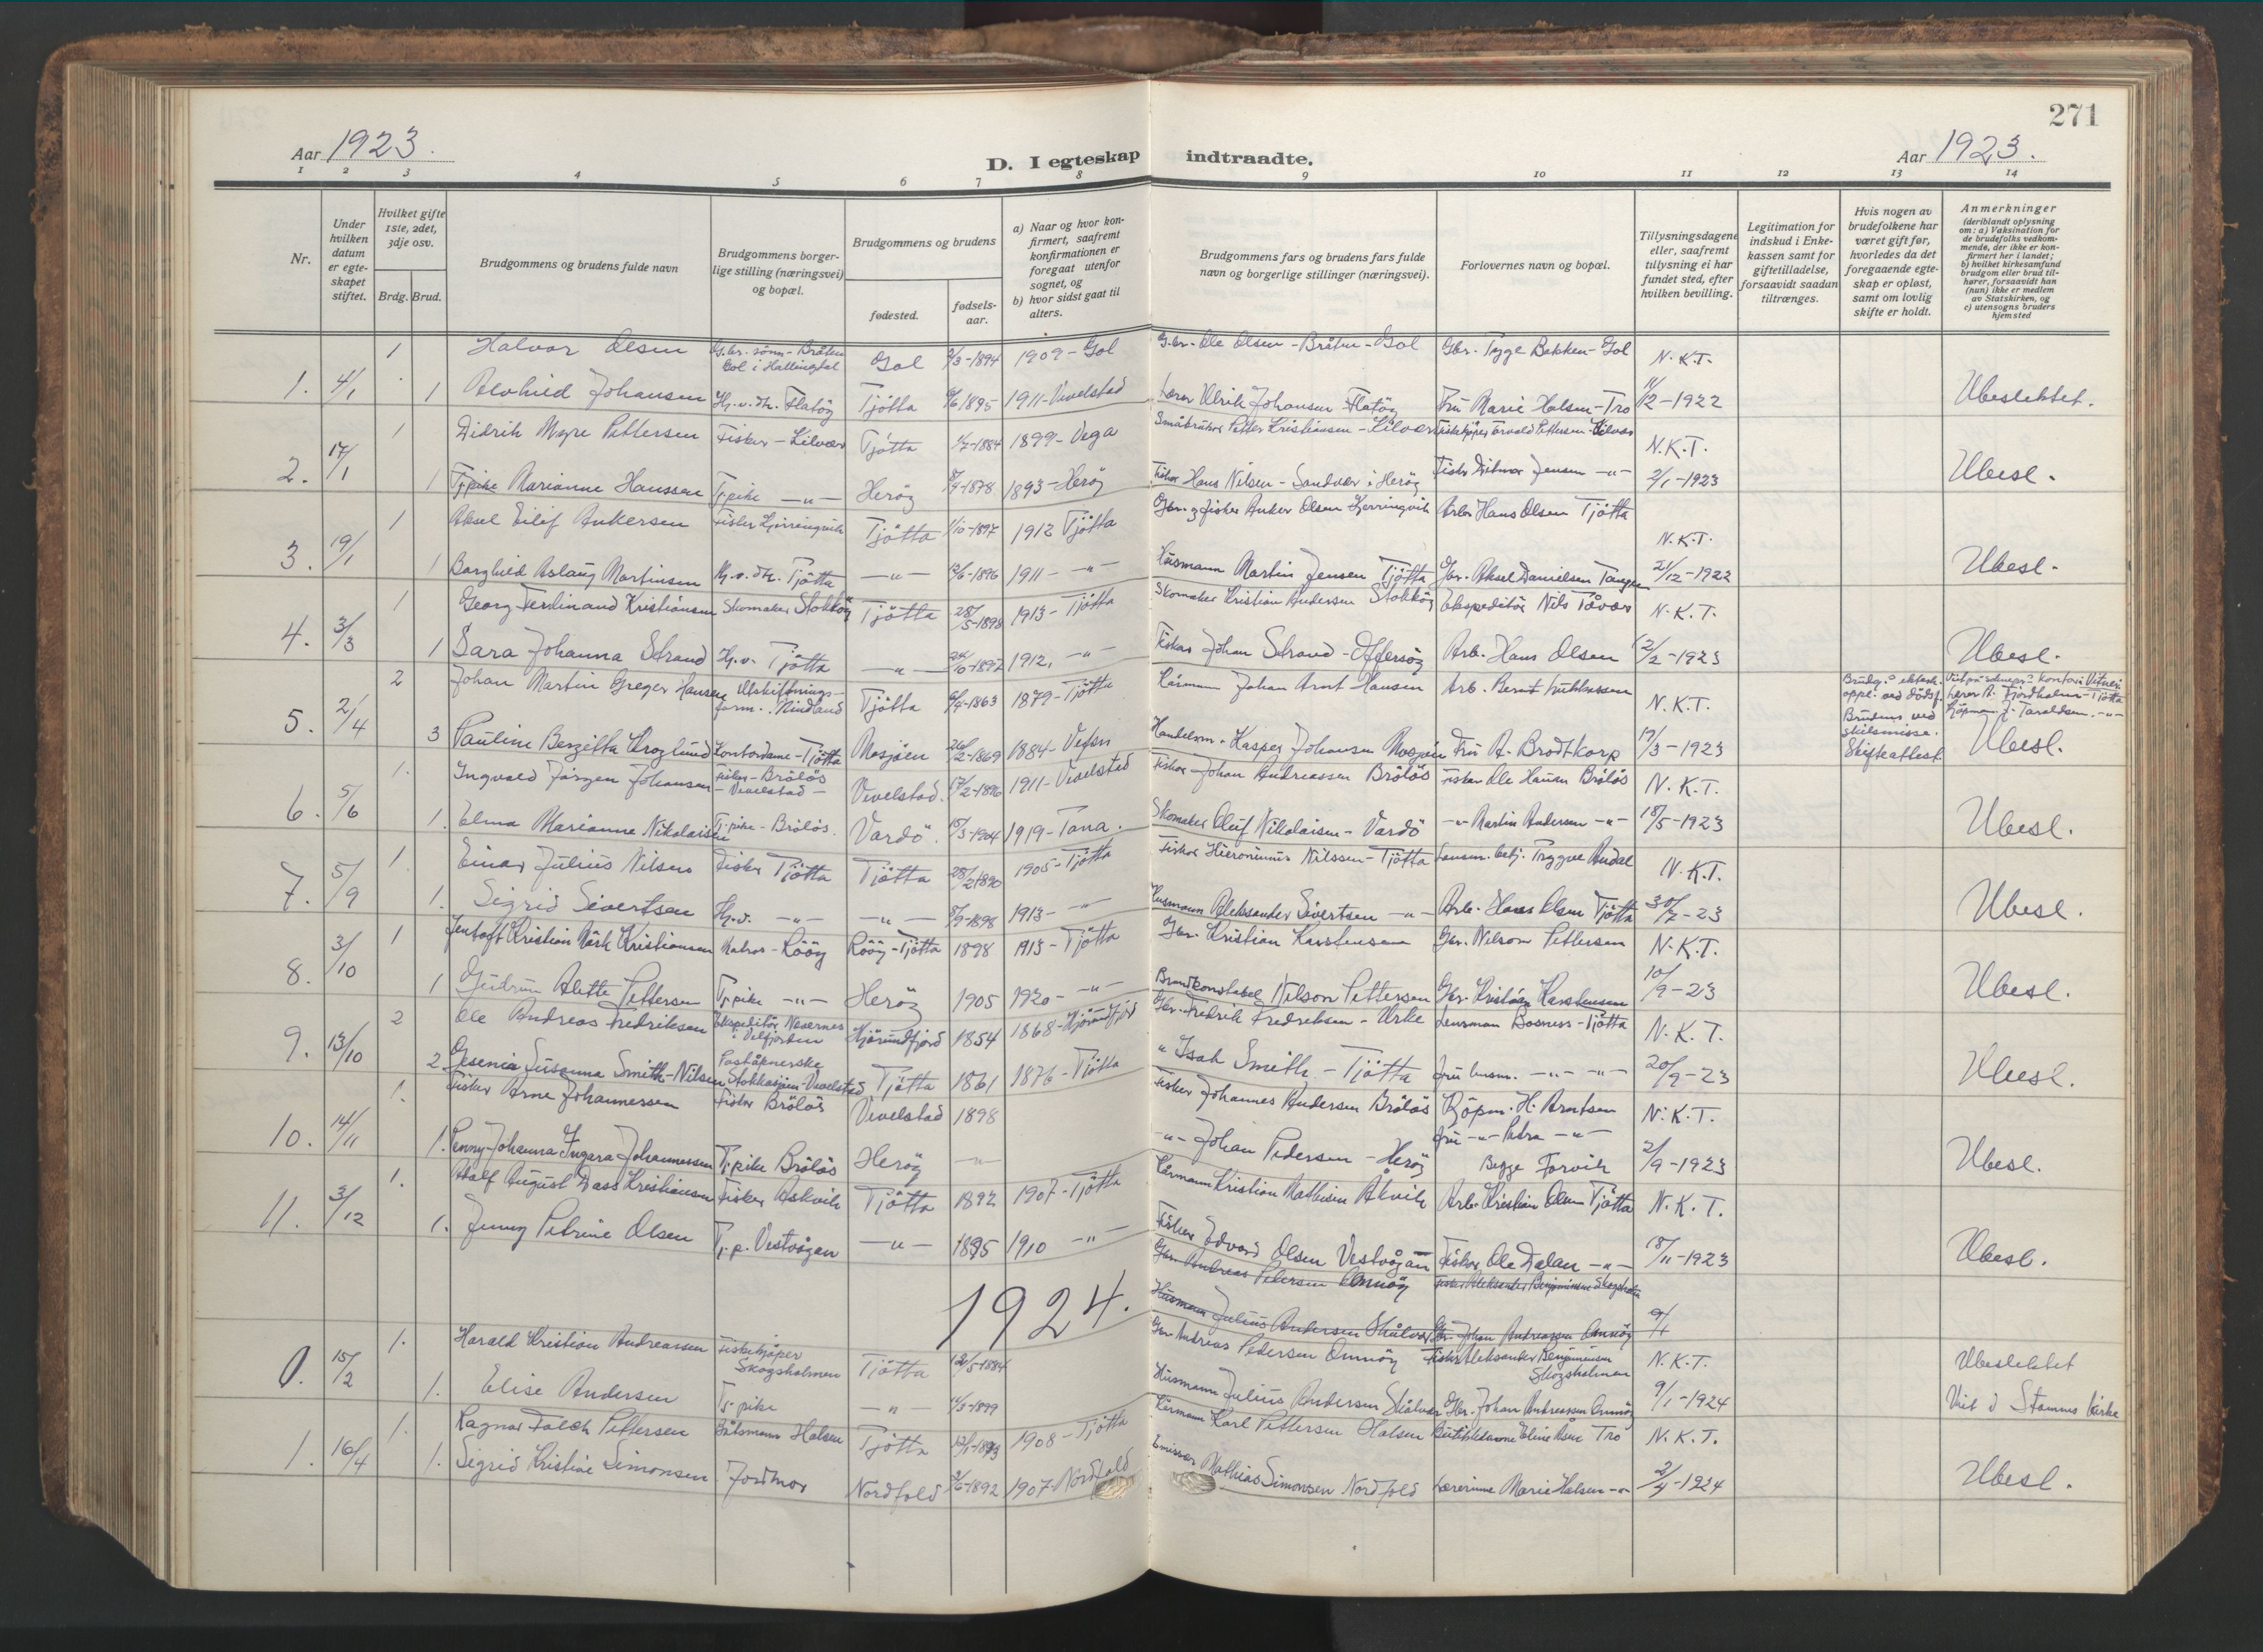 271
Aar 1923.
D. I egteskap indtraadte.
Aar 1923.
1 2 3 4 5 6 7 8 9 10 11 12 13 14
Nr.
Under hvilken datum er egteskapet stiftet.
Hvilket gifte 1ste, 2det, 3dje osv.
Brdg. Brud.
Brudgommens og brudens fulde navn
Brudgommens borgerlige stilling (næringsvei) og bopæl.
Brudgommens og brudens
fødested.
fødsels-aar.
a) Naar og hvor konfirmert, saafremt konfirmationen er foregaat utenfor sognet, og
b) hvor sidst gaat til alters.
Brudgommens fars og brudens fars fulde navn og borgerlige stillinger (næringsvei).
Forlovernes navn og bopæl.
Tillysningsdagene eller, saafremt tillysning ei har fundet sted, efter hvilken bevilling.
Legitimation for indskud i Enkekassen samt for giftetilladelse, forsaavidt saadan tiltrænges.
Hvis nogen av brudefolkene har været gift før, hvorledes da det foregaaende egteskap er opløst, samt om lovlig skifte er holdt.
Anmerkninger
(deriblandt oplysning om: a) Vaksination for de brudefolks vedkommende, der ikke er konfirmert her i landet; b) hvilket kirkesamfund brudgom eller brud tilhører, forsaavidt han (hun) ikke er medlem av Statskirken, og c) utensogns bruders hjemsted
1 Halvor Olsen G.br. sønn - Bråten Gol i Hallingdal Gol /3-1894 1909 - Gol G.br. Ole Olsen - Bråten - Gol Gbr. Tygge Bakken - Gol N.K.T.
1. 4/1 1 Alvhild Johansen Hj.v. dtr. Flatöy Tjötta /6 1895 1911 - Vevelstad Lærer Ulrik Johansen Flatöy Fru Marie Halsen - Tro 11/12-1922 Ubeslektet.
1 Didrik Myre Pettersen Fisker - Lilvær Tjötta 1/7-1884 1899 - Vega Småbruker Petter Kristiansen - Lilvær Fiskekjöper Torvald Pettersen - Lilvær N.K.T.
2. 17/1 1 Tj.pike Marianne Hanssen Tj.pike -"- Heröy 8/4-1878 1893 - Heröy Fisker Hans Nilsen - Sandvær i Heröy Fisker Ditmar Jensen -"- 2/1-1923 Ubesl.
1 Aksel Eilif Ankersen Fisker Kjerringvik Tjötta /10-1897 1912 Tjötta Gbr. g fisker Anker Olsen Kjerringvik Arbr Hans Olsen Tjötta N.K.T.
3. 19/1 1 Borghild Aslaug Martinsen Hj.v. dtr. Tjötta -"- /6-1896 1911 - -"- Husmann Martin Jensen Tjötta Gbr. Aksel Danielsen Tangen 21/12-1922 Ubesl.
1 Georg Ferdinand Kristiansen Skomaker Stokköy Tjötta 28/5-1898 1913 - Tjötta Skomaker Kristian Andersen Stokköy Ekspeditör Nils Tövær N.K.T.
4. 3/3 1 Sara Johanna Strand Hj.v. Tjötta -"- /10-1897 1912, -"- Fisker Johan Strand - Offersöy Arb. Hans Olsen 12/2-1923 Ubesl.
2 Johan Martin Greger Hansen Utskiftnings-form. Mindland Tjötta 6/4-1863 1879 - Tjötta Kårmann Johan Arnt Hansen Arb. Bernt N.K.T. Brudg.s ektesk. oppl. ved dödsf. Brudens ved skilsmisse. Skifteattest. Viet på kontor. Vitner: Lærer A. Fjordholm - Tjötta Kjöpm. J. Taraldsen -"-
5. 2/4 3 Pauline Bergitta Kroglund Kontordame - Tjötta Mosjöen 26/2-1869 1884 - Vefsn Handelsm. Kasper Johansen Mosjöen Fru A. Brodtkorp 17/3-1923 Ubesl.
1. Ingvald Jörgen Johansen Fisker - Brölös - Vevelstad - Vevelstad. 17/2-1896 1911 - Vevelstad Fisker Johan Andreassen Brölös Fisker Ole Hansen Brölös N.K.T.
6. 5/6 1. Elma Marianne Nikolaisen Tj.pike - Brölös. Vardö. 15/3-1904 1919 - Tana. Skomaker Oluf Nikolaisen - Vardö -"- Martin Andersen -"- 18/5-1923 Ubesl.
1. Einar Julius Nilsen Fisker Tjötta Tjötta 28/2 1890 1905 - Tjötta Fisker Hieronimus Nilssen - Tjötta Lensm. betj. Trygve Andal N.K.T.
7. 5/9 1. Sigrid Sivertsen Hj.v. -"- -"- 8/9-1898 1913 - -"- Husmann Aleksander Sivertsen -"- Arb. Hans Olsen Tjötta 30/7-23 Ubesl.
1 Jentoft Kristian Mörk Kristiansen Matros - Rööy Rööy - Tjötta 1898 1913 - Tjötta Gbr. Kristian Karstensen Gbr. Nilson Pettersen N.K.T.
8. 3/10 1 Gudrun Alette Pettersen Tj.pike -"- Heröy 1905 1920 - -"- Brandkonstabel Nilson Pettersen Gbr. Kristian Karstensen 10/9-23 Ubesl.
2 Ole Andreas Fredriksen Ekspeditör Nevernes i Velfjorden Hjörundfjord 1854 1868 - Hjörundfjord Gbr. Fredrik Fredriksen - Urke Lensman Bosness - Tjötta N.K.T.
9. 13/10 2 Gjesenia Susanna Smith-Nilsen Poståpnerske Stokkasjöen - Vevelstad Tjötta 1861 1876 - Tjötta " Isak Smith - Tjötta fru lensm. -"- -"- 20/9-23 Ubesl.
1. Fisker Arne Johannessen Fisker Brölös Vevelstad 1898 Fisker Johannes Andersen Brölös Kjöpm. H. Arntsen N.K.T.
10. 14/11 1. Penny Johanna Ingara Johannessen Tj.pike Brölös Heröy -"- -"- Johan Pedersen - Heröy fru -"- Petra -"- Begge Forvik 2/9-1923 Ubesl.
1. Adolf August Dass Kristiansen Fisker Askvik Tjötta 1892 1907 - Tjötta Kårmann Kristian Mathisen Akvik Arb. Kristian Olsen Tjötta N.K.T.
11. 3/12 1. Jenny Petrine Olsen Tj.p. Vestvågen -"- 1895 1910 -"- Fisker Edvard Olsen Vestvågen Fisker Ole Dalan -"- 18/11-1923 Ubesl.
1924.
Gbr. Andreas Pedersen Omnöy Fisker Aleksander Benjaminsen Skogsholmen
Husmann Julius Andersen Skålvær Gbr. Johan Andreassen Omnöy 9/1
1. Harald Kristian Andreassen Fiskekjöper Skogsholmen Tjötta 12/5-1884 Gbr. Andreas Pedersen Omnöy Fisker Aleksander Benjaminsen Skogsholmen N.K.T. Ubeslektet
0. 15/2 1. Elise Andersen Tj.pike -"- /3-1899 Husmann Julius Andersen Skålvær Gbr. Johan Andreassen Omnöy 9/1-1924 Viet i Stamnes kirke
1. Ragnar Falch Pettersen Båtsmann Halsen Tjötta 12/1-1893 1908 - Tjötta Kårmann Karl Pettersen Halsen Butikkdame Eline Åsen Tro N.K.T.
1. 16/4 1. Sigrid Kristine Simonsen Jordmor Nordfold /6-1892 1907 - Nordfold Emissær Mathias Simonsen Nordfold Lærerinne Marie Halsen -"- 2/4-1924 Ubesl.